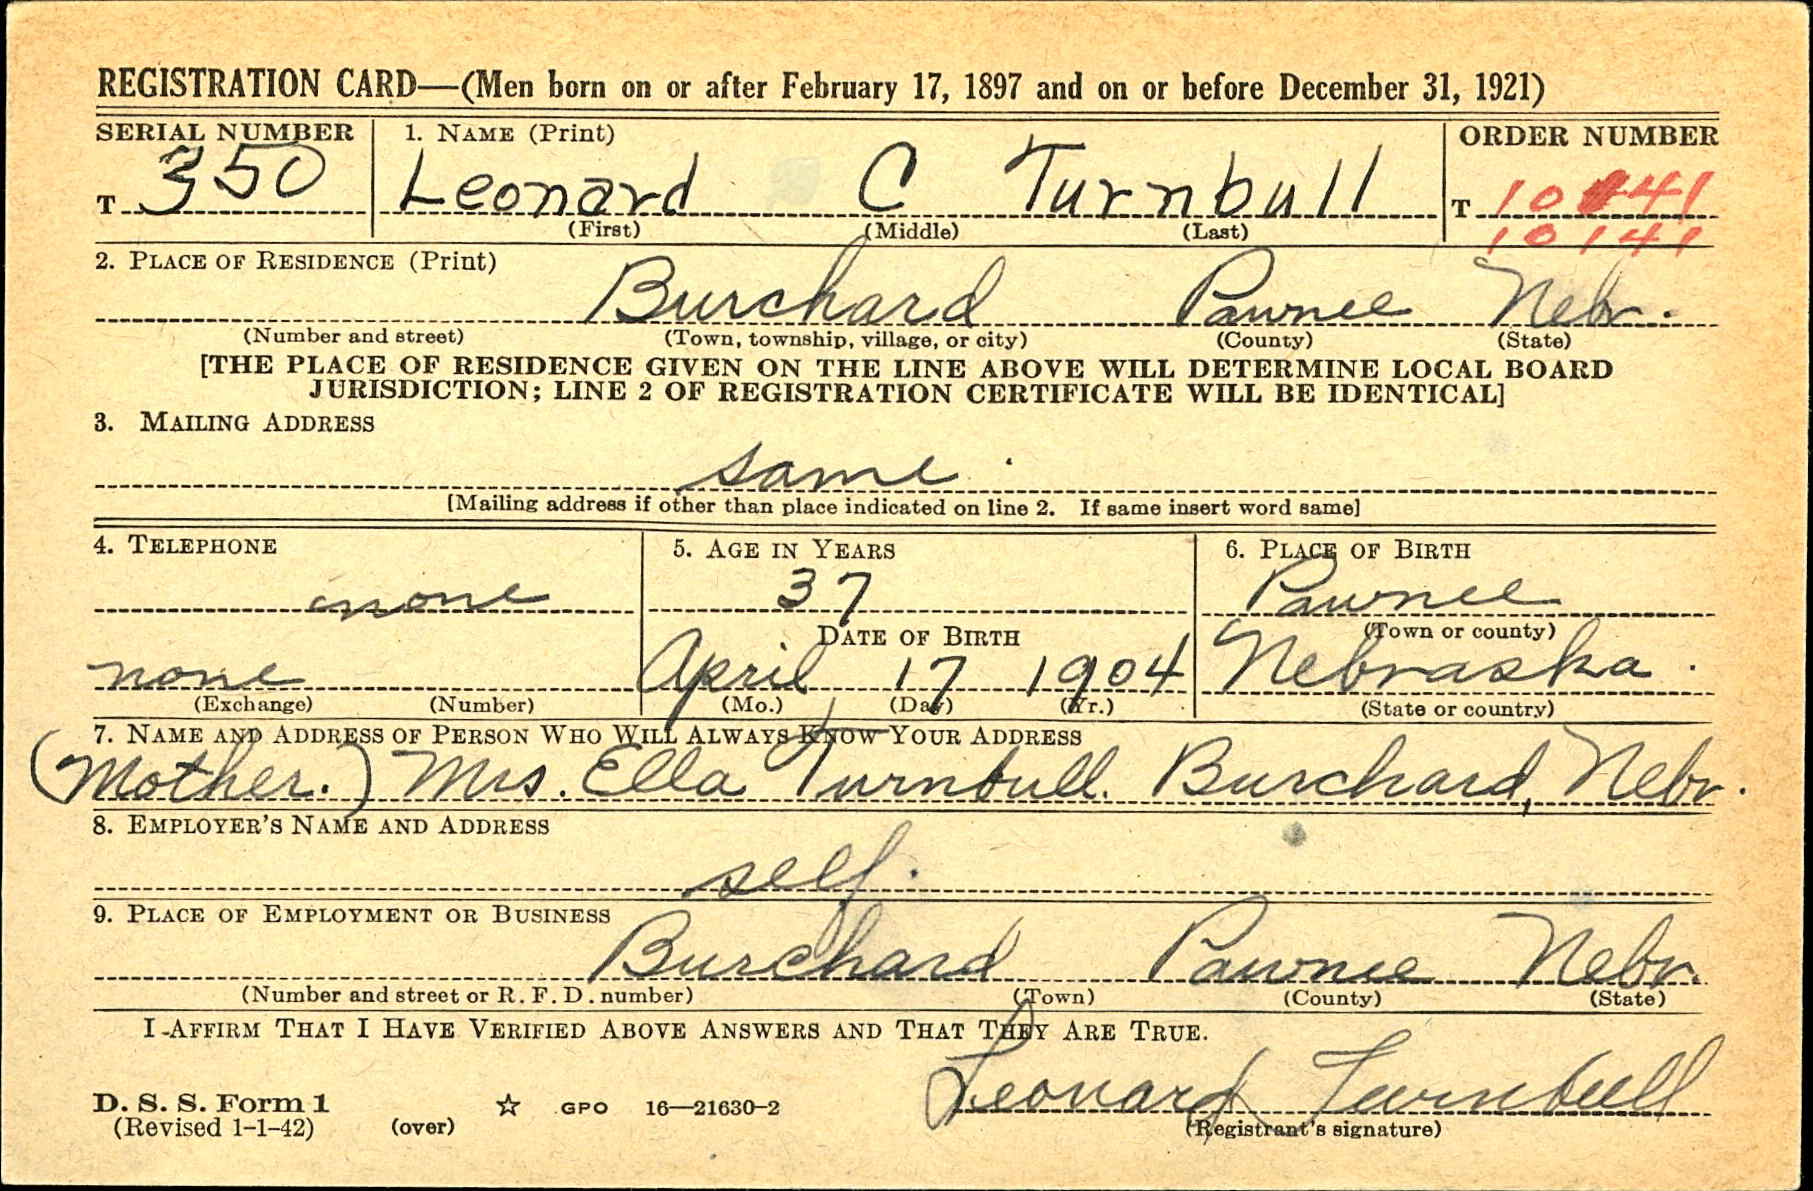 REGISTRATION CARD—(Men born on or after February 17, 1897 and on or before December 31, 1921)
SERIAL NUMBER 1. NAME (Print) ORDER NUMBER
T 350 Leonard C Turnbull T 10141
(First) (Middle) (Last) 10141
2. PLACE OF RESIDENCE (Print)
Burchard Pawnee Nebr.
(Number and street) (Town, township, village, or city) (County) (State)
[THE PLACE OF RESIDENCE GIVEN ON THE LINE ABOVE WILL DETERMINE LOCAL BOARD
JURISDICTION; LINE 2 OF REGISTRATION CERTIFICATE WILL BE IDENTICAL]
3. MAILING ADDRESS
same.
[Mailing address if other than place indicated on line 2. If same insert word same]
4. TELEPHONE 5. AGE IN YEARS 6. PLACE OF BIRTH
none 37 Pawnee
DATE OF BIRTH (Town or county)
none April 17 1904 Nebraska.
(Exchange) (Number) (Mo.) (Day) (Yr.) (State or country)
7. NAME AND ADDRESS OF PERSON WHO WILL ALWAYS KNOW YOUR ADDRESS
(Mother.) Mrs. Ella Turnbull. Burchard, Nebr.
8. EMPLOYER'S NAME AND ADDRESS
self.
9. PLACE OF EMPLOYMENT OR BUSINESS
Burchard Pawnee Nebr.
(Number and street or R. F. D. number) (Town) (County) (State)
I AFFIRM THAT I HAVE VERIFIED ABOVE ANSWERS AND THAT THEY ARE TRUE.
Leonard Turnbull
D. S. S. Form 1 GPO 16—21630-2
(Revised 1-1-42) (over) (Registrant's signature)